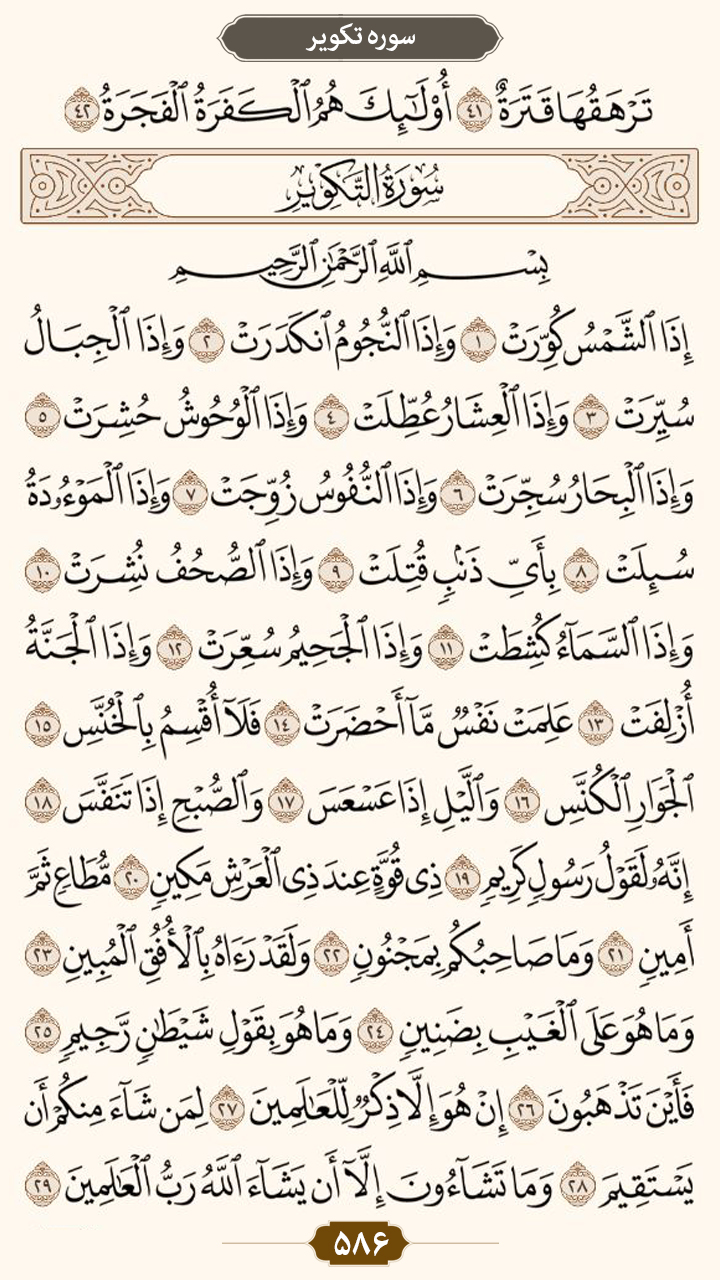 سوره تکویر
تَرْهَقُهَا قَتَرَةٌ ٤١ أُوْلَٰٓئِكَ هُمُ ٱلْكَفَرَةُ ٱلْفَجَرَةُ ٤٢
سُورَةُ التَّكْوِيرِ
بِسْمِ ٱللَّهِ ٱلرَّحْمَٰنِ ٱلرَّحِيمِ
إِذَا ٱلشَّمْسُ كُوِّرَتْ ١ وَإِذَا ٱلنُّجُومُ ٱنكَدَرَتْ ٢ وَإِذَا ٱلْجِبَالُ
سُيِّرَتْ ٣ وَإِذَا ٱلْعِشَارُ عُطِّلَتْ ٤ وَإِذَا ٱلْوُحُوشُ حُشِرَتْ ٥
وَإِذَا ٱلْبِحَارُ سُجِّرَتْ ٦ وَإِذَا ٱلنُّفُوسُ زُوِّجَتْ ٧ وَإِذَا ٱلْمَوْءُۥدَةُ
سُئِلَتْ ٨ بِأَيِّ ذَنۢبٍ قُتِلَتْ ٩ وَإِذَا ٱلصُّحُفُ نُشِرَتْ ١٠
وَإِذَا ٱلسَّمَآءُ كُشِطَتْ ١١ وَإِذَا ٱلْجَحِيمُ سُعِّرَتْ ١٢ وَإِذَا ٱلْجَنَّةُ
أُزْلِفَتْ ١٣ عَلِمَتْ نَفْسٌ مَّآ أَحْضَرَتْ ١٤ فَلَآ أُقْسِمُ بِٱلْخُنَّسِ ١٥
ٱلْجَوَارِ ٱلْكُنَّسِ ١٦ وَٱلَّيْلِ إِذَا عَسْعَسَ ١٧ وَٱلصُّبْحِ إِذَا تَنَفَّسَ ١٨
إِنَّهُۥ لَقَوْلُ رَسُولٍ كَرِيمٍ ١٩ ذِى قُوَّةٍ عِندَ ذِى ٱلْعَرْشِ مَكِينٍ ٢٠ مُّطَاعٍ ثَمَّ
أَمِينٍ ٢١ وَمَا صَاحِبُكُم بِمَجْنُونٍ ٢٢ وَلَقَدْ رَءَاهُ بِٱلْأُفُقِ ٱلْمُبِينِ ٢٣
وَمَا هُوَ عَلَى ٱلْغَيْبِ بِضَنِينٍ ٢٤ وَمَا هُوَ بِقَوْلِ شَيْطَٰنٍ رَّجِيمٍ ٢٥
فَأَيْنَ تَذْهَبُونَ ٢٦ إِنْ هُوَ إِلَّا ذِكْرٌ لِّلْعَٰلَمِينَ ٢٧ لِمَن شَآءَ مِنكُمْ أَن
يَسْتَقِيمَ ٢٨ وَمَا تَشَآءُونَ إِلَّآ أَن يَشَآءَ ٱللَّهُ رَبُّ ٱلْعَٰلَمِينَ ٢٩
۵۸۶